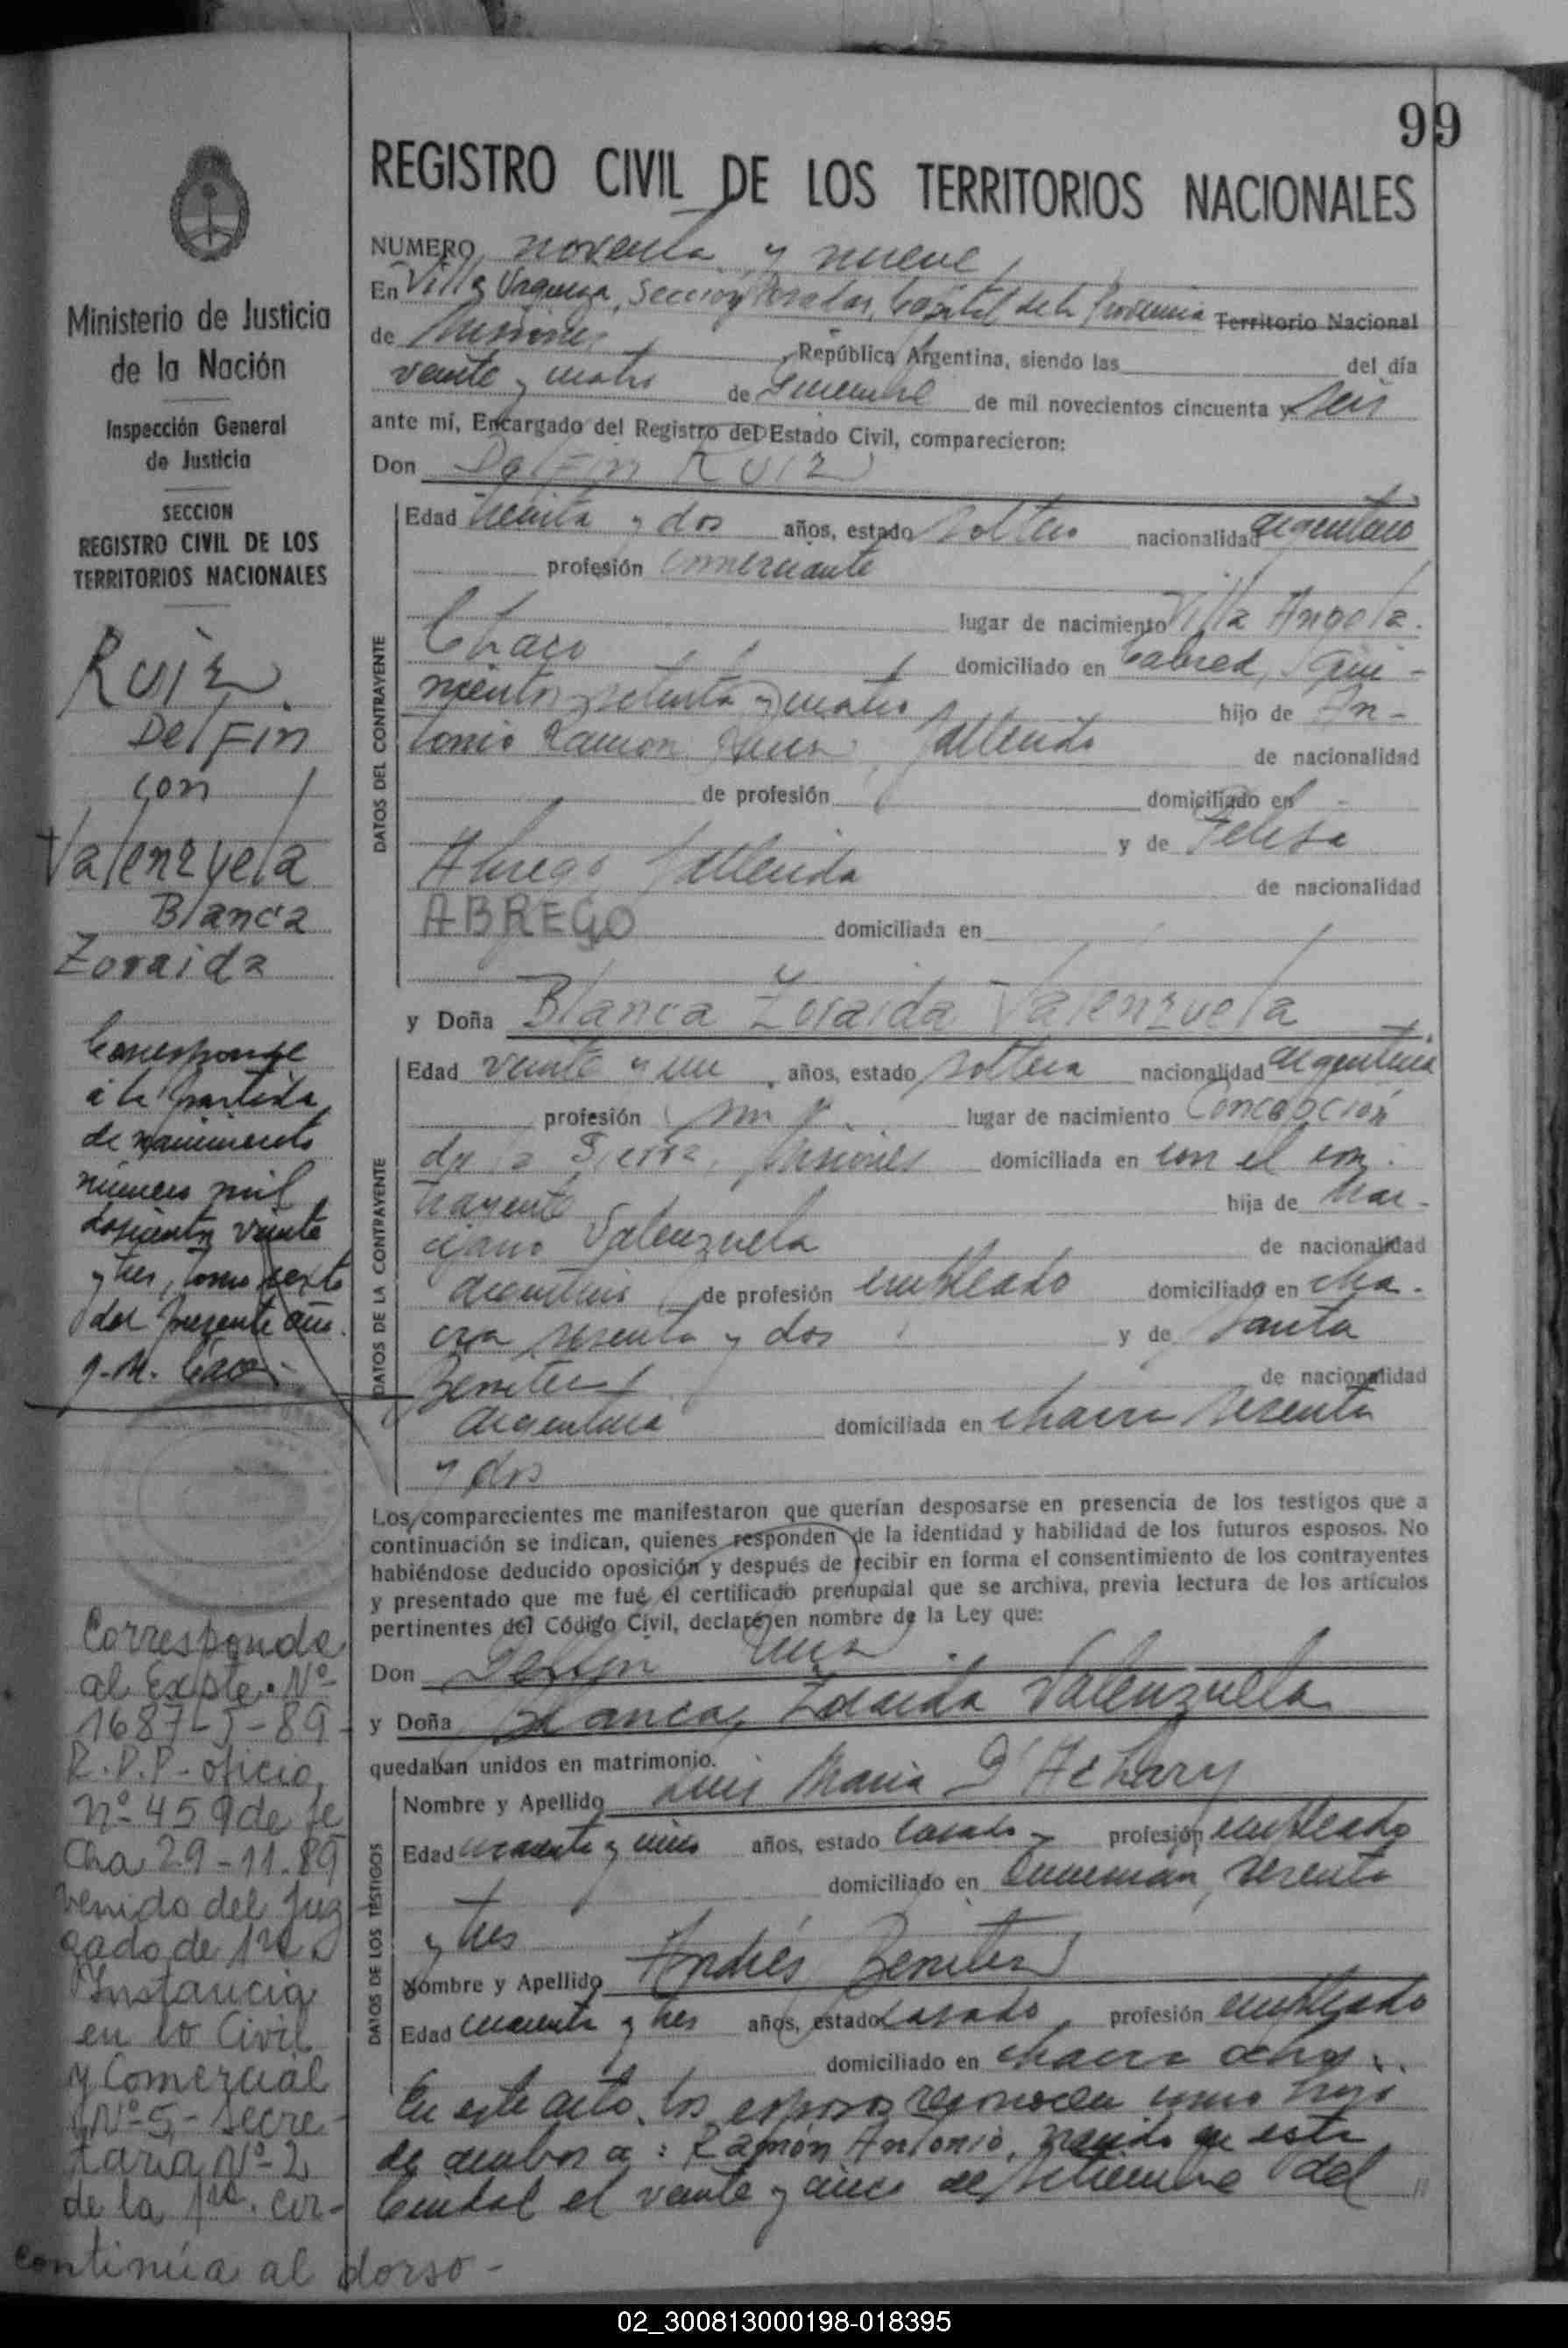 99
REGISTRO CIVIL DE LOS TERRITORIOS NACIONALES
NUMERO noventa y nueve
En Villa Urquiza, Sección Posadas, Capital de la Provincia Territorio Nacional
de Misiones, República Argentina, siendo las del día
veinte y cuatro de de mil novecientos cincuenta y seis
ante mí, Encargado del Registro del Estado Civil, comparecieron:
Don Delfin Ruiz
DATOS DEL CONTRAYENTE
Edad treinta y dos años, estado soltero nacionalidad argentino
profesión comerciante
lugar de nacimiento Villa Angela.
Chaco domiciliado en Cabred, qui-
nientos setenta y cuatro hijo de An-
tonio Ramón Ruiz, fallecido de nacionalidad
de profesión domiciliado en
y de Felisa
Abrego, fallecida de nacionalidad
ABREGO domiciliada en
y Doña Blanca Zoraida Valenzuela
DATOS DE LA CONTRAYENTE
Edad veinte y un años, estado soltera nacionalidad argentina
profesión sin p. lugar de nacimiento Concepción
de la Sierra, Misiones domiciliada en con el con-
trayente hija de Mar-
Valenzuela de nacionalidad
argentino, de profesión empleado domiciliado en cha-
cra sesenta y dos y de Santa
Benitez de nacionalidad
argentina domiciliada en chacra sesenta
y dos
Los comparecientes me manifestaron que querían desposarse en presencia de los testigos que a
continuación se indican, quienes responden de la identidad y habilidad de los futuros esposos. No
habiéndose deducido oposición y después de recibir en forma el consentimiento de los contrayentes
y presentado que me fué el certificado prenupcial que se archiva, previa lectura de los artículos
pertinentes del Código Civil, declaré en nombre de la Ley que:
Don Delfin Ruiz
y Doña Blanca Zoraida Valenzuela
quedaban unidos en matrimonio.
DATOS DE LOS TESTIGOS
Nombre y Apellido Luis Maria D'Achary
Edad años, estado casado profesión empleado
domiciliado en sesenta
y tres
Nombre y Apellido Andrés Benitez
Edad cuarenta y tres años, estado casado, profesión empleado
domiciliado en chacra ocho.
En este acto, los esposos reconocen como hijo
de ambos a: Ramón Antonio, nacido en esta
Capital el veinte y cinco de setiembre del //
Ministerio de Justicia
de la Nación
Inspección General
de Justicia
SECCION
REGISTRO CIVIL DE LOS
TERRITORIOS NACIONALES
Ruiz
Delfin
con
Valenzuela
Blanca
Zoraida
Corresponde
a la partida
de nacimiento
número mil
doscientos veinte
y tres, tomo sexto
del presente año.
Corresponde
al Expte. Nº
1687-J-89-
R.P.P. oficio
nº 459 de fe
cha 29-11-89
venido del Juz
gado de 1ra
Instancia
en lo Civil
y Comercial
Nº 5, - Secre-
taria Nº 2
de la 1ra. Cir-
continúa al dorso-
02_300813000198-018395